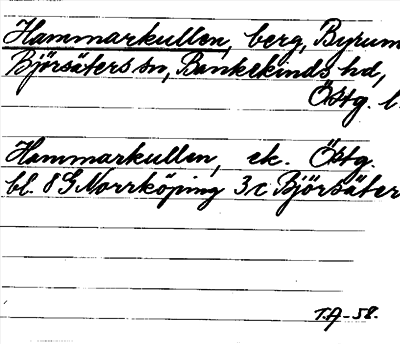 Hammarkullen, berg, Byrum
Björsäters sn, Bankekinds hd,
Östg. l.
Hammarkullen, ek. Östg.
bl. 8 G Norrköping 3 c Björsäter
T.A-58.